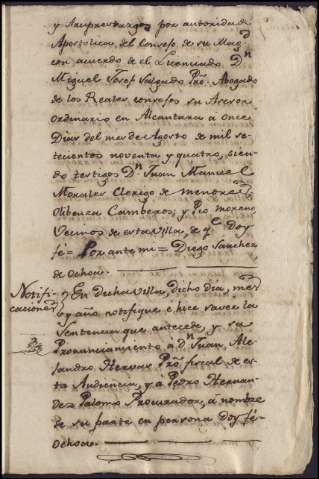 y Arciprestazgo, por autoridad
Apostolica, del Consejo de su Mag.d
con acuerdo de el Licenciado D.n
Miguel Josef Salgado Pro. Abogado
de los Reales consejos su Asesor
ordinario en Alcantara a once
Dias del mes de Agosto de mil se-
tecientos noventa y quatro, sien-
do testigos D.n Juan Manuel
Morales Clerigo de menores
Olibenza Camberos, y Pio moreno
Vecinos de esta villa, de q.e Doy
fé = Por ante mi = Diego Sanchez
de Ochoa.
Notifi- En dicha villa, dicho dia, mes
caciones y año notifique è hice saver la
Sentencia que antecede, y su
Pronunciamiento a D.n Juan Ale-
sandro Hernar Pro. fiscal de es-
ta Audiencia, y a Pedro Hernan-
dez Palomo Procurador, a nombre
de su parte en persona doy fé=
Ochoa.